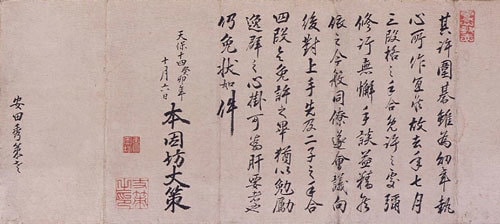 其許圍碁雖為幼年執
心所作宜敷故去年七月
三段格之手合免許之處弥
修行無懈手談益精
依之今般同僚遂會議向
後對上手先及二子之手合
四段令免許之畢猶以勉勵
逸群之心掛可為肝要者也
仍免状如件
天保十四癸卯年
十月六日
本因坊丈策
安田秀策